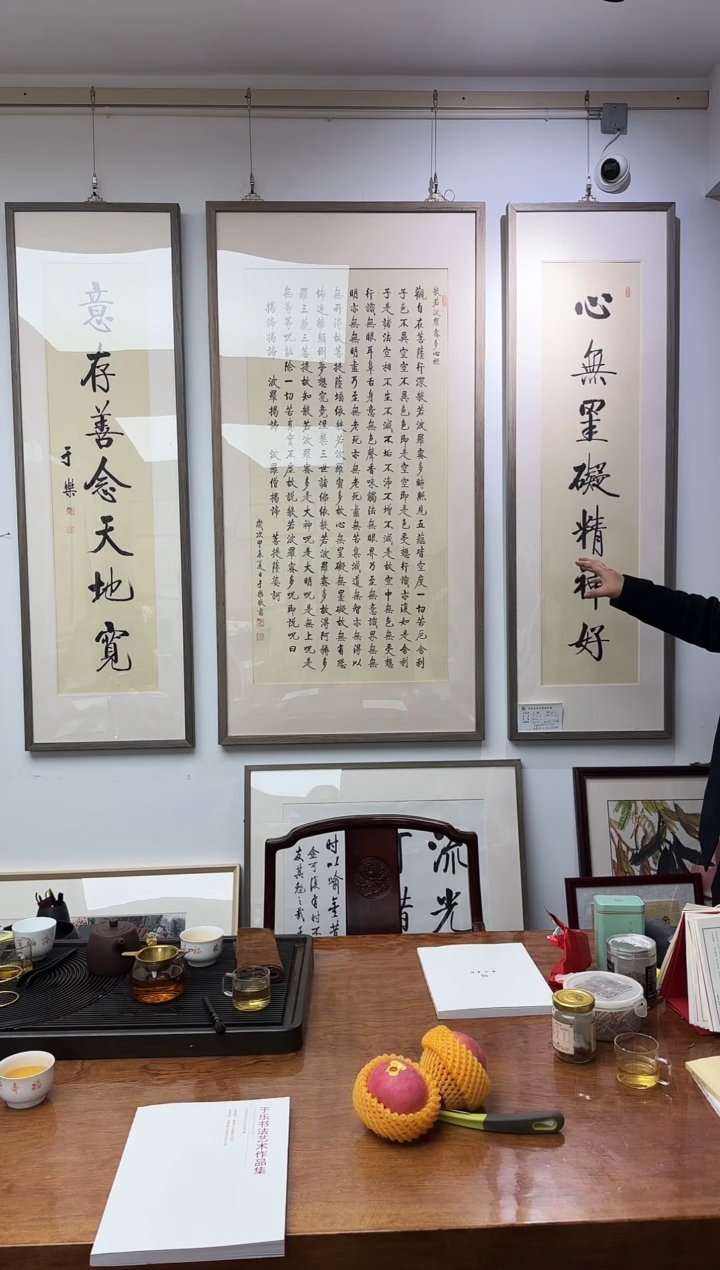 心無罣礙精神好
般若波羅蜜多心經
觀自在菩薩行深般若波羅蜜多時照見五蘊皆空度一切苦厄舍利
子色不異空空不異色色即是空空即是色受想行識亦復如是舍利
子是諸法空相不生不滅不垢不淨不增不減是故空中無色無受想
行識無眼耳鼻舌身意無色聲香味觸法無眼界乃至無意識界無無
明亦無無明盡乃至無老死亦無老死盡無苦集滅道無智亦無得以
無所得故菩提薩埵依般若波羅蜜多故心無罣礙無罣礙故無有恐
怖遠離顛倒夢想究竟涅槃三世諸佛依般若波羅蜜多故得阿耨多
羅三藐三菩提故知般若波羅蜜多是大神呪是大明呪是無上呪是
無等等呪能除一切苦真實不虛故說般若波羅蜜多呪即說呪曰
揭諦揭諦 波羅揭諦 波羅僧揭諦 菩提薩婆訶
歲次甲辰夏日于樂敬書
意存善念天地寬
于樂
流光
惜
時以喻
友其勉之哉
于乐书法艺术作品集
福
壽